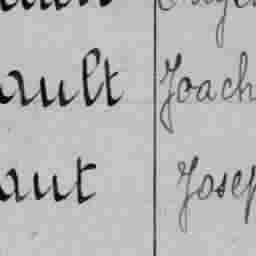 ault Joach
aut Josep